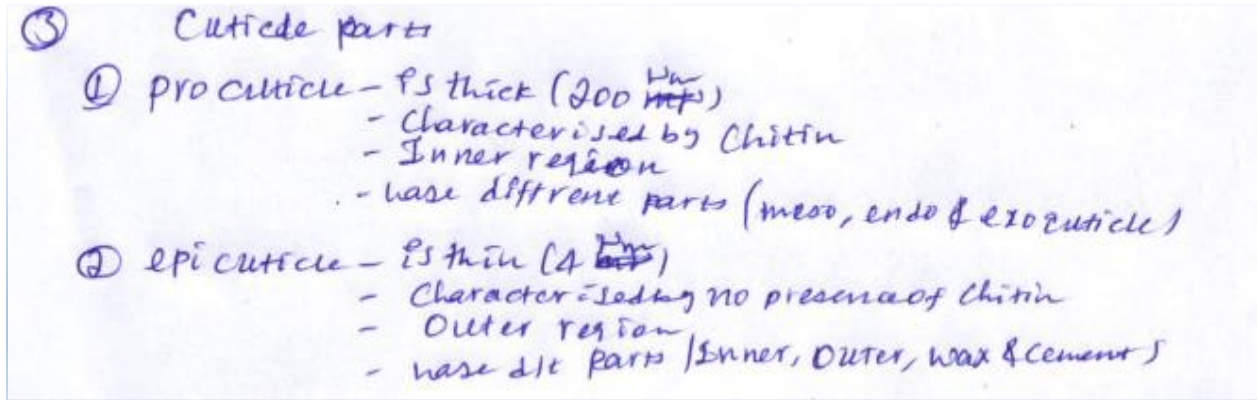 ③ Cuticde parts
① procuticle - is thick (200 µm)
- Characterised by Chitin
- Inner region
- hase diffrent parts (meso, endo & exocuticle)
② epicuticle - is thin (4 µm)
- Characterised by no presence of Chitin
- Outer region
- hase d/t parts (Inner, Outer, wax & Cement)